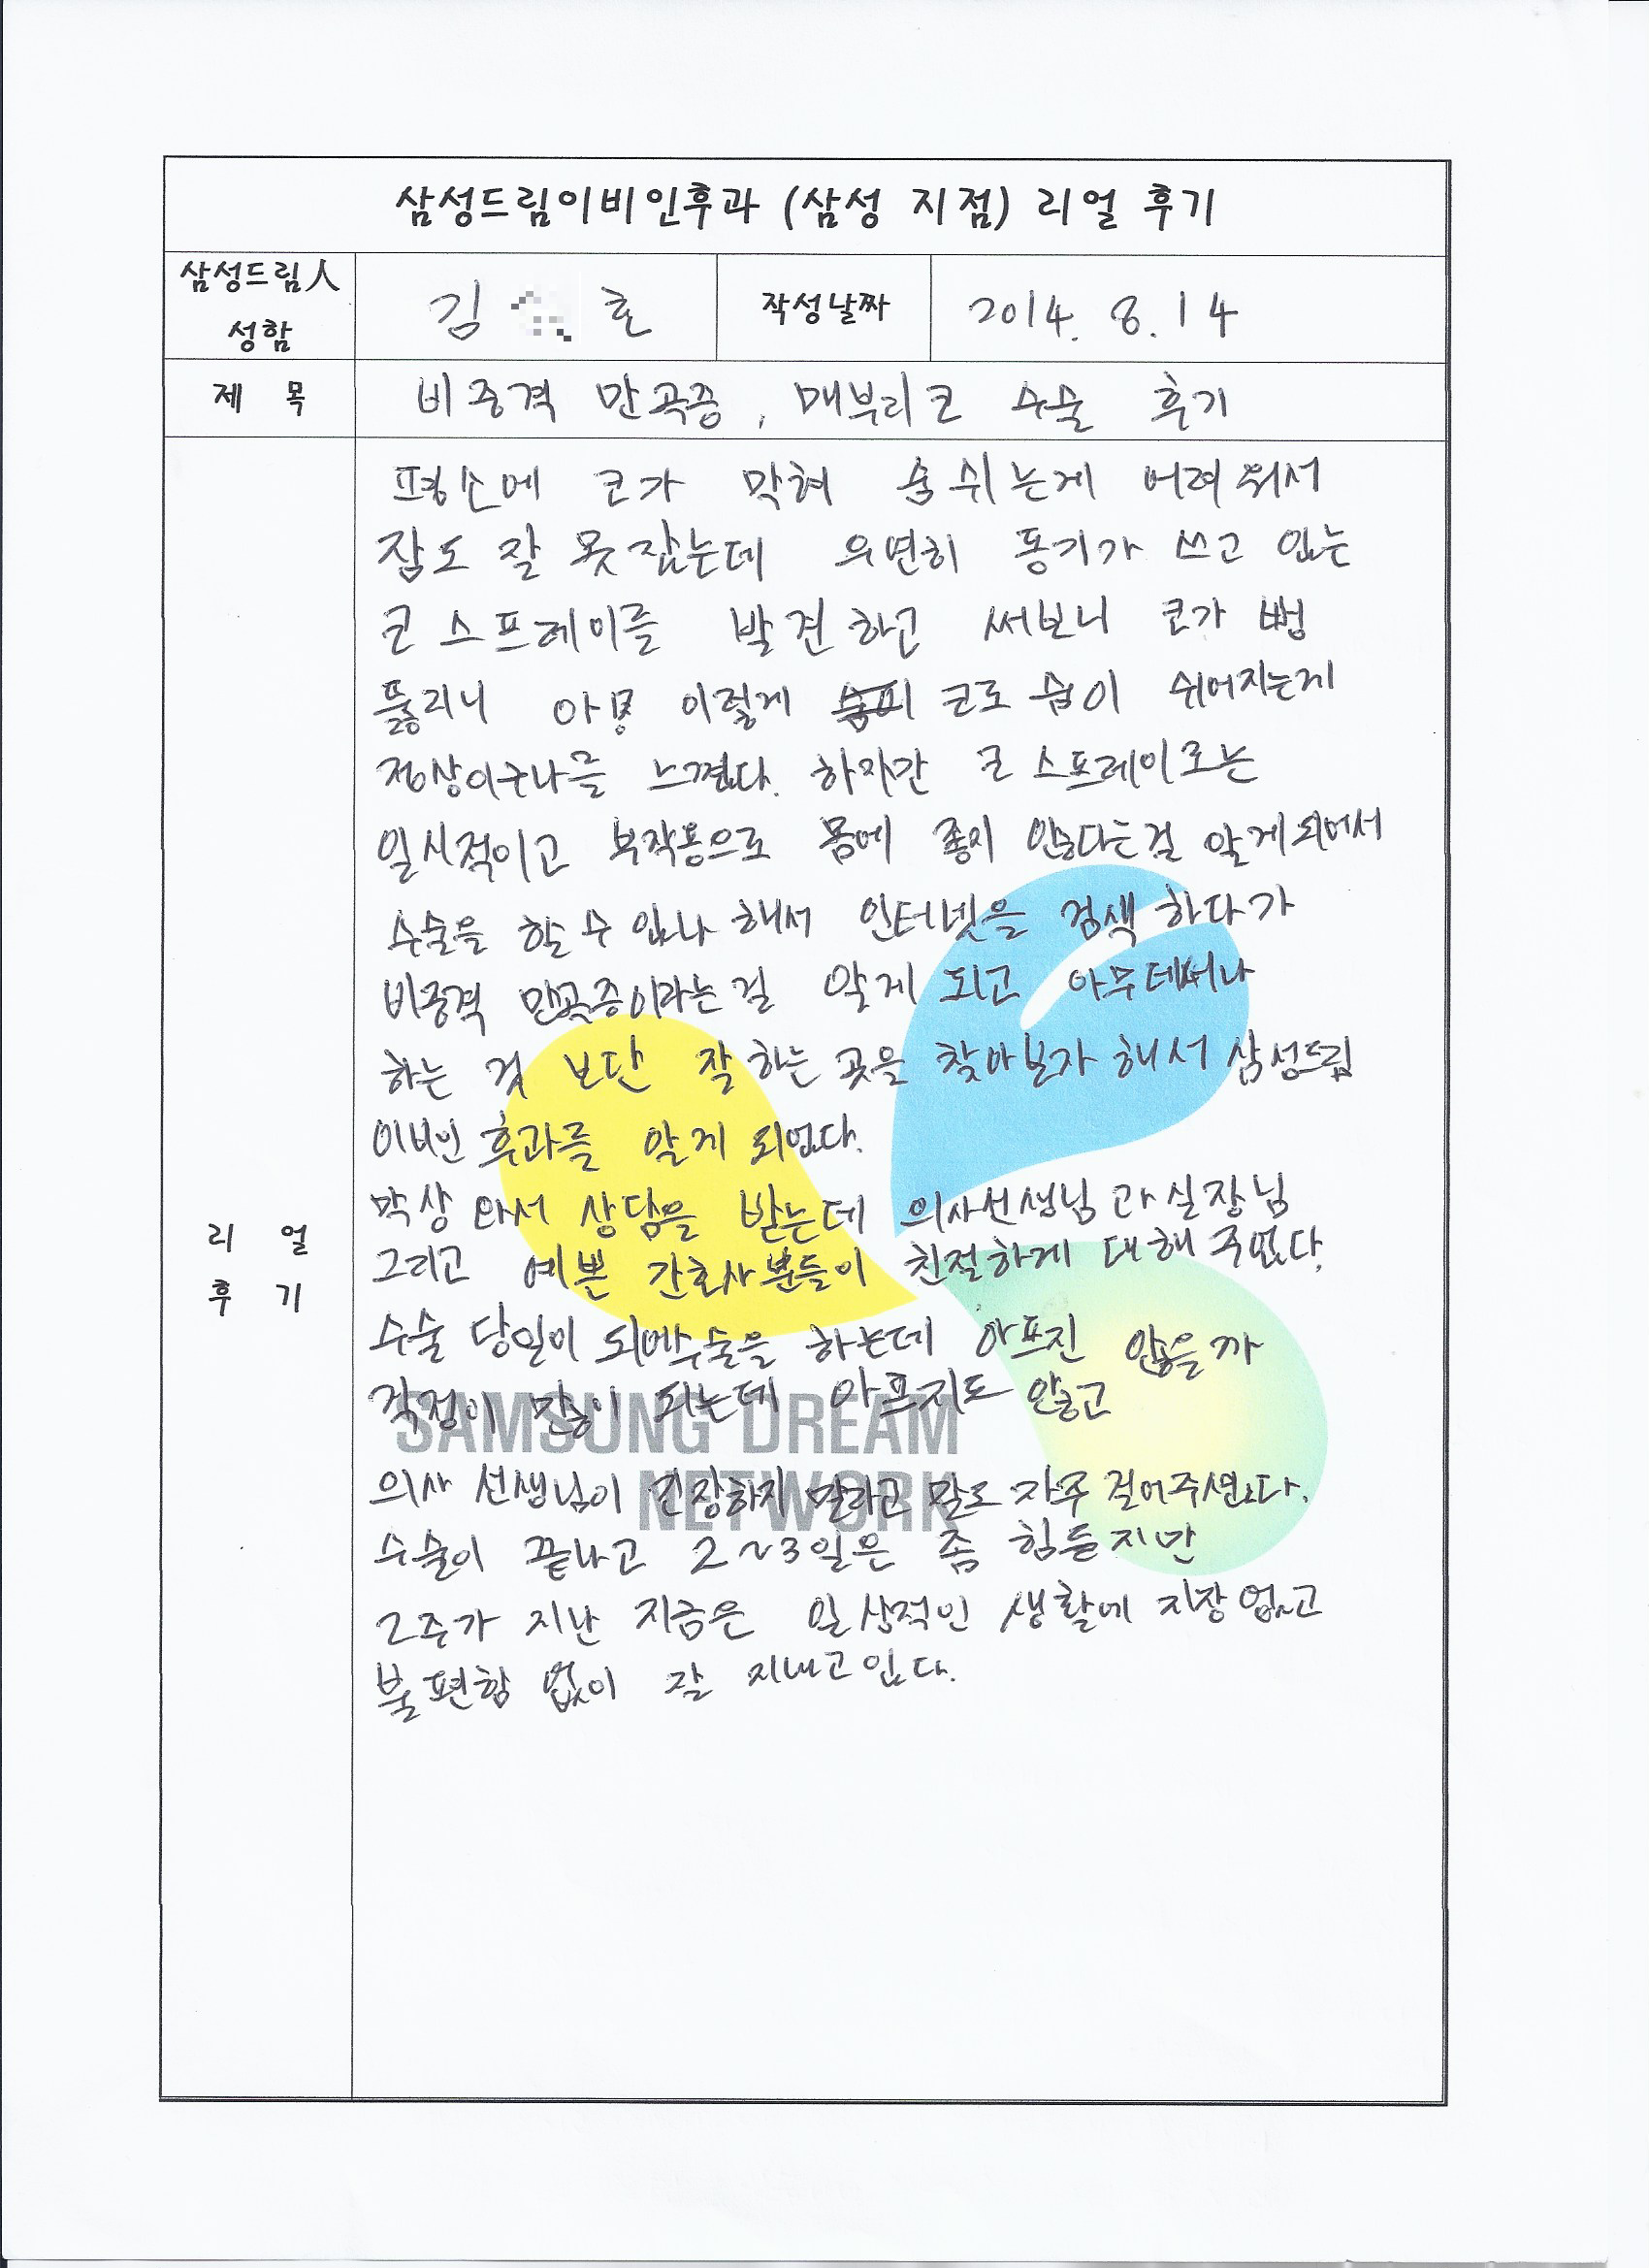 삼성드림이비인후과 (삼성 지점) 리얼 후기
삼성드림人 성함
김 호
작성날짜
2014. 8. 14
제 목
비중격 만곡증, 매부리코 수술 후기
리 얼 후 기
평소에 코가 막혀 숨쉬는게 어려워서
잠도 잘 못잤는데 우연히 동기가 쓰고 있는
코 스프레이를 발견하고 써보니 코가 뻥
뚫리니 아 이렇게 코로 숨이 쉬어지는게
정상이구나를 느꼈다. 하지만 코 스프레이로는
일시적이고 부작용으로 몸에 좋지 않다는걸 알게되어서
수술을 할 수 있나 해서 인터넷을 검색하다가
비중격 만곡증이라는걸 알게 되고 아무데서나
하는 것 보단 잘하는 곳을 찾아보자 해서 삼성드림
이비인후과를 알게 되었다.
막상 와서 상담을 받는데 의사선생님과 실장님
그리고 예쁜 간호사분들이 친절하게 대해 주었다.
수술 당일이 되어 수술을 하는데 아프진 않을까
걱정이 많이 되는데 아프지도 않고
의사 선생님이 긴장하지 말라고 말도 자주 걸어주셨다.
수술이 끝나고 2~3일은 좀 힘들지만
2주가 지난 지금은 일상적인 생활에 지장없고
불편함 없이 잘 지내고있다.
SAMSUNG DREAM
NETWORK